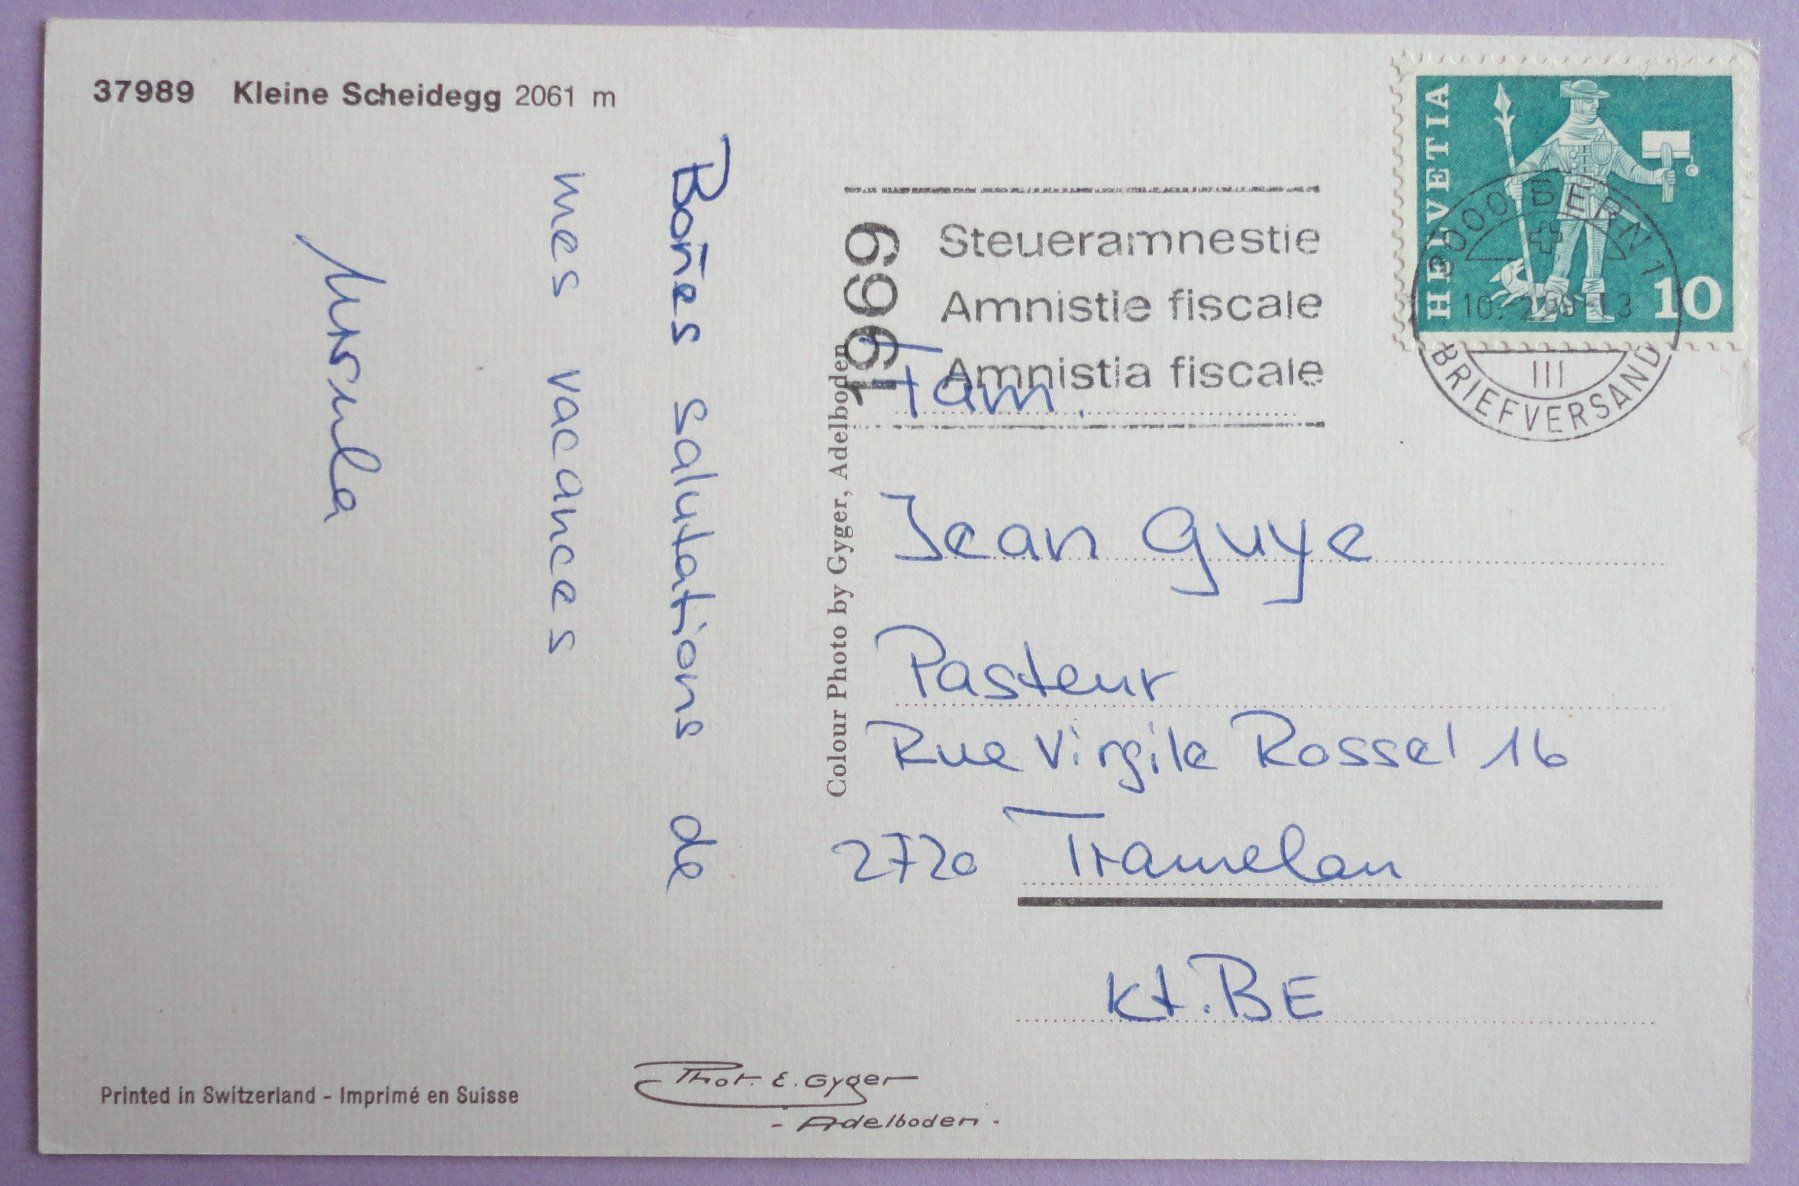 37989 Kleine Scheidegg 2061 m
Bon̄es salutations de
mes vacances
Ursula
Colour Photo by Gyger, Adelboden
1969
Steueramnestie
Amnistie fiscale
Amnistia fiscale
HELVETIA
10
3000 BERN 1
BRIEFVERSAND
III
Fam.
Jean Guye
Pasteur
Rue Virgile Rossel 16
2720 Tramelan
Kt. BE
Printed in Switzerland - Imprimé en Suisse
Phot. E. Gyger
- Adelboden -